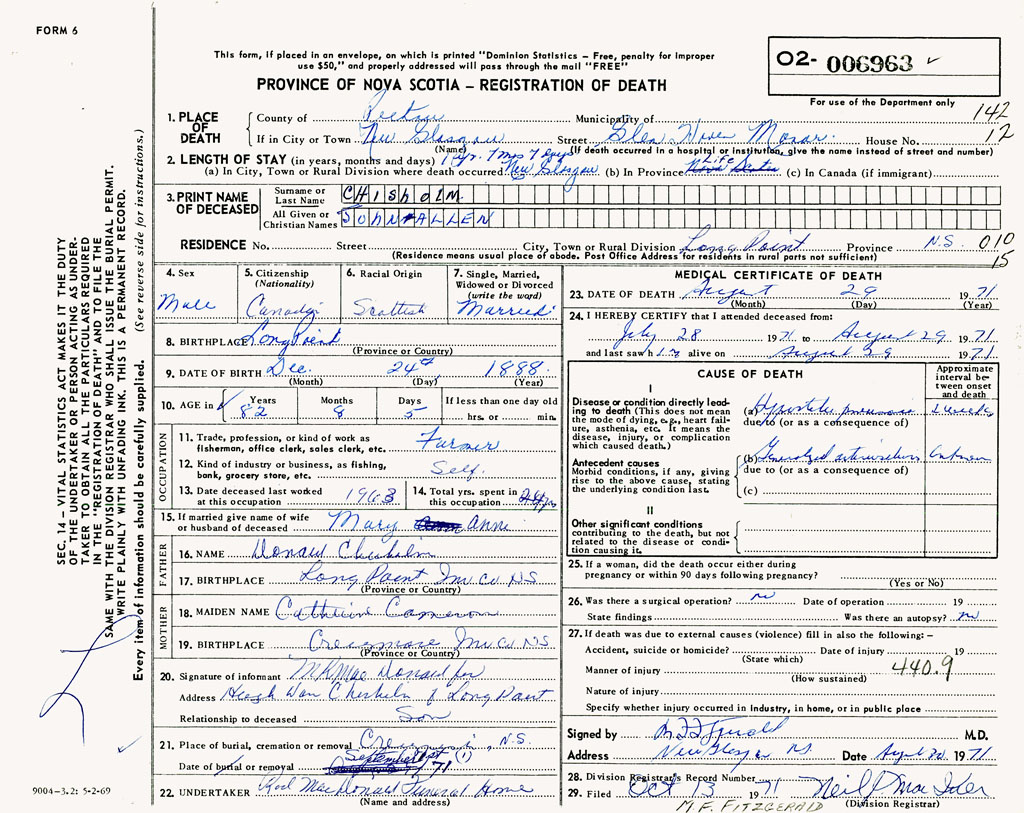 FORM 6
This form, if placed in an envelope, on which is printed "Dominion Statistics – Free, penalty for improper
use $50," and properly addressed will pass through the mail "FREE"
O2- 006963
PROVINCE OF NOVA SCOTIA – REGISTRATION OF DEATH
For use of the Department only
1. PLACE OF DEATH
County of Pictou Municipality of 142
If in City or Town New Glasgow Street Glen Haven Manor House No. 12
(Name) (If death occurred in a hospital or institution, give the name instead of street and number)
2. LENGTH OF STAY (in years, months and days) 1 yr. 7 mos 7 days Life
(a) In City, Town or Rural Division where death occurred New Glasgow (b) In Province Nova Scotia (c) In Canada (if immigrant)
3. PRINT NAME OF DECEASED
Surname or Last Name CHISHOLM
All Given or Christian Names JOHN ALLEN
RESIDENCE No. Street City, Town or Rural Division Long Point Province N.S. 010
(Residence means usual place of abode. Post Office Address for residents in rural parts not sufficient) 15
4. Sex Male
5. Citizenship (Nationality)
6. Racial Origin Scottish
7. Single, Married, Widowed or Divorced (write the word) Married
8. BIRTHPLACE Long Point
(Province or Country)
9. DATE OF BIRTH Dec. 24th 1888
(Month) (Day) (Year)
10. AGE in Years 82 Months 8 Days 5 If less than one day old hrs. or min.
OCCUPATION
11. Trade, profession, or kind of work as fisherman, office clerk, sales clerk, etc. Farmer
12. Kind of industry or business, as fishing, bank, grocery store, etc. Self.
13. Date deceased last worked at this occupation 1963
14. Total yrs. spent in this occupation
15. If married give name of wife or husband of deceased Mary Ann
FATHER
16. NAME Donald Chisholm
17. BIRTHPLACE Long Point Inv. Co NS
(Province or Country)
MOTHER
18. MAIDEN NAME Catherine Cameron
19. BIRTHPLACE Creignish Inv Co NS
(Province or Country)
20. Signature of informant MacDonald for
Address Hugh Dan Chisholm of Long Point
Relationship to deceased Son
21. Place of burial, cremation or removal Creignish, N.S.
Date of burial or removal September 1 71
22. UNDERTAKER Rod MacDonald Funeral Home
(Name and address)
MEDICAL CERTIFICATE OF DEATH
23. DATE OF DEATH August 29 1971
(Month) (Day) (Year)
24. I HEREBY CERTIFY that I attended deceased from:
July 28 1971 to August 29 1971
and last saw him alive on August 29 1971
CAUSE OF DEATH
Approximate interval between onset and death
I
Disease or condition directly leading to death (This does not mean the mode of dying, e.g., heart failure, asthenia, etc. It means the disease, injury, or complication which caused death.)
(a) Hypostatic pneumonia
due to (or as a consequence of)
Antecedent causes
Morbid conditions, if any, giving rise to the above cause, stating the underlying condition last.
(b) Generalized arteriosclerosis Unknown
due to (or as a consequence of)
(c)
II
Other significant conditions contributing to the death, but not related to the disease or condition causing it.
25. If a woman, did the death occur either during pregnancy or within 90 days following pregnancy?
(Yes or No)
26. Was there a surgical operation? no Date of operation 19
State findings Was there an autopsy? no
27. If death was due to external causes (violence) fill in also the following: –
Accident, suicide or homicide? Date of injury 19
(State which)
Manner of injury 440.9
(How sustained)
Nature of injury
Specify whether injury occurred in industry, in home, or in public place
Signed by M.D.
Address New Glasgow NS Date August 30 1971
28. Division Registrar's Record Number
29. Filed Oct 13 1971
(Division Registrar)
M.F. FITZGERALD
SEC. 14 – VITAL STATISTICS ACT MAKES IT THE DUTY
OF THE UNDERTAKER OR PERSON ACTING AS UNDERTAKER
TO OBTAIN ALL THE PARTICULARS REQUIRED
IN THE "REGISTRATION OF DEATH" AND TO FILE THE
SAME WITH THE DIVISION REGISTRAR WHO SHALL ISSUE THE BURIAL PERMIT.
WRITE PLAINLY WITH UNFADING INK. THIS IS A PERMANENT RECORD.
Every item of information should be carefully supplied. (See reverse side for instructions.)
9004-3.2: 5-2-69